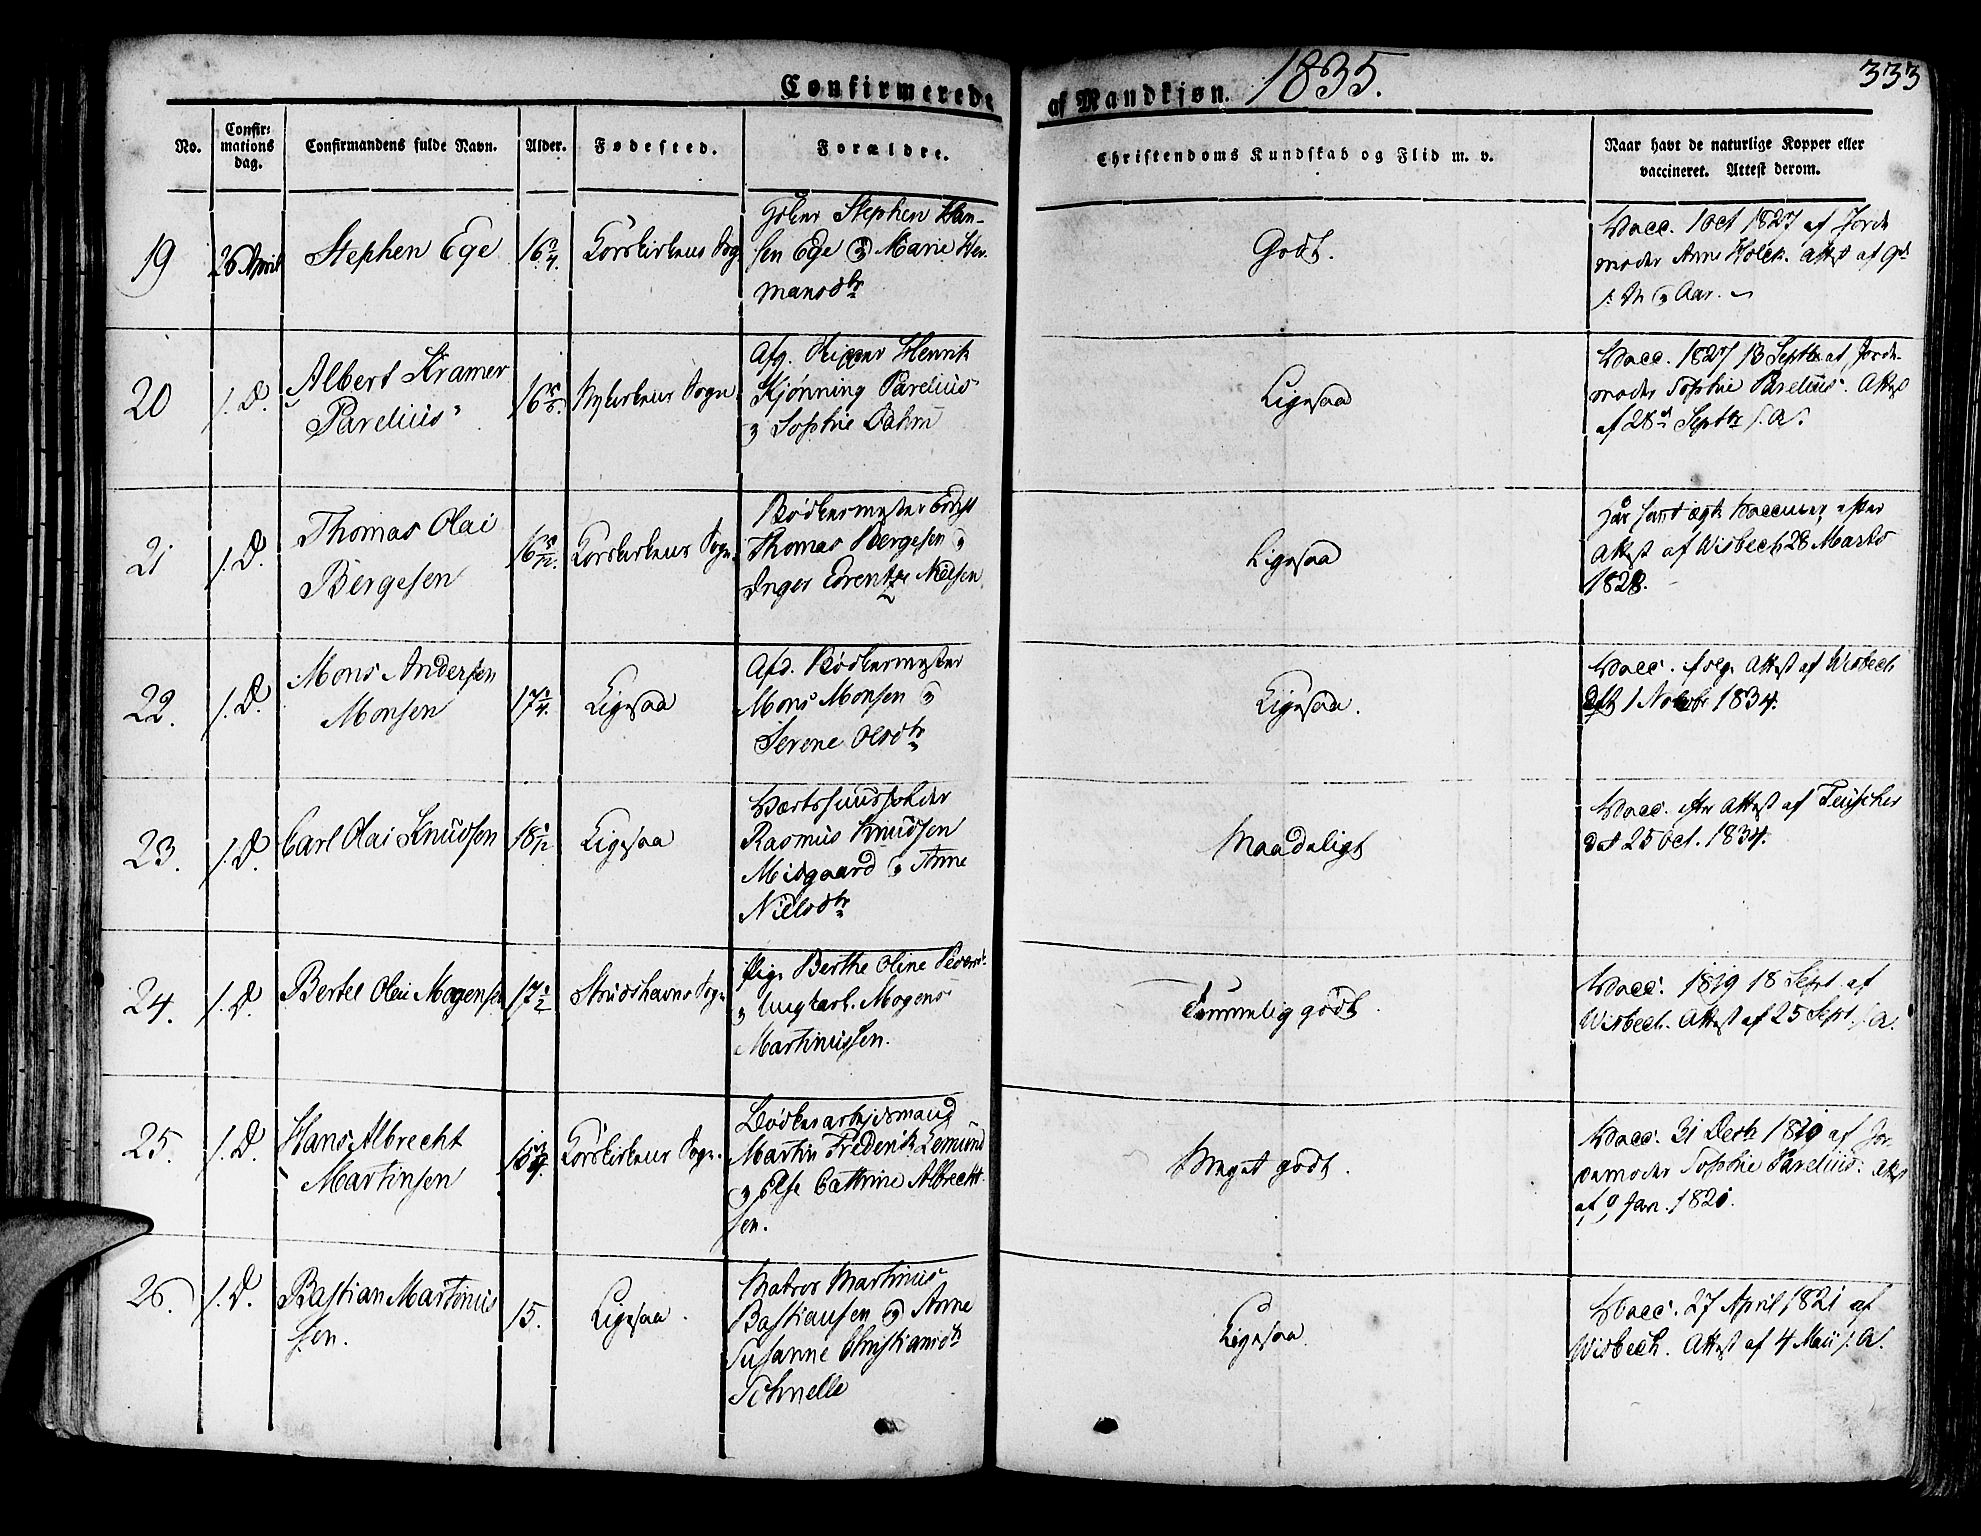 Confirmerede af Mandkjøn. 1835. 333
No.
Confir-
mations
dag.
Confirmandens fulde Navn.
Alder.
Fødested.
Forældre.
Christendoms Kundskab og Flid m. v.
Naar havt de naturlige Kopper eller
vaccineret. Attest derom.
19
26 April
Stephen Ege
16
Korskirkens Sogn
Stephen Han-
sen Ege & Marie Her-
mansdtr
Godt.
Vacc. 1 Oct 1827 af Jorde
moder Anne Attest af
s. Aar.
20
s. D.
Albert Kramer
Parelius
16
Nykirkens Sogn
Afg. Henrik
Kjønning Parelius
& Sophie Dahm
Ligesaa
Vacc. 1827 13 Septbr af Jorde-
moder Sophie Parelius. Attest
af 28d Septbr s. A.
21
s. D.
Thomas Olai
Bergesen
16 5/12
Korskirkens Sogn
Bødkermester
Thomas Bergesen &
Inger Nielsen
Ligesaa
efter
Attest af Wisbech 28 Marts
1828.
22.
s. D.
Mons Andersen
Monsen
17 1/4
Ligesaa
Afd. Bødkermester
Mons Monsen &
Serene Olsdtr
Ligesaa.
Vacc. Attest af Wisbech
1 Novbr 1834.
23.
s. D.
Carl Olai Knudsen
18 1/12
Ligesaa
Værtshuusholder
Rasmus Knudsen
Midgaard & Anne
Nielsdtr
Maadeligt
Vacc. efter Attest af Teuscher
dat 25 Oct. 1834.
24.
s. D.
Bertel Olai Mogensen
17 1/2
Strudshavns Sogn
Pige Berthe Oline Peders
& Ungkarl. Mogens
Martinussen.
Temmelig godt.
Vacc. 1819 18 Sept af
Wisbech. Attest af 25 Sept s. A.
25.
s. D.
Hans Albrecht
Martinsen
Korskirkens Sogn.
Bødkerarbeidsmand
Martin Frederik
& Else Cathrine Albrecht-
sen.
Meget godt.
Vacc. 31 Decbr 1820 af Jor-
demoder Sophie Parelius. Attest
af Jan. 1821.
26.
s. D.
Bastian Martinus
sen.
15.
Ligesaa.
Matros Martinus
Bastiansen & Anne
Susanne Christiansdtr
Schnelle
Ligesaa.
Vacc. 27 April 1821 af
Wisbech. Attest af 4 Maii s. A.